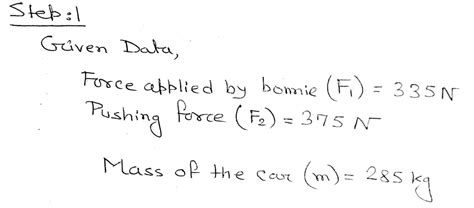 Step:1
Given Data,
Force applied by bonnie (F₁) = 335N
Pushing force (F₂) = 375 N
Mass of the car (m) = 285 kg